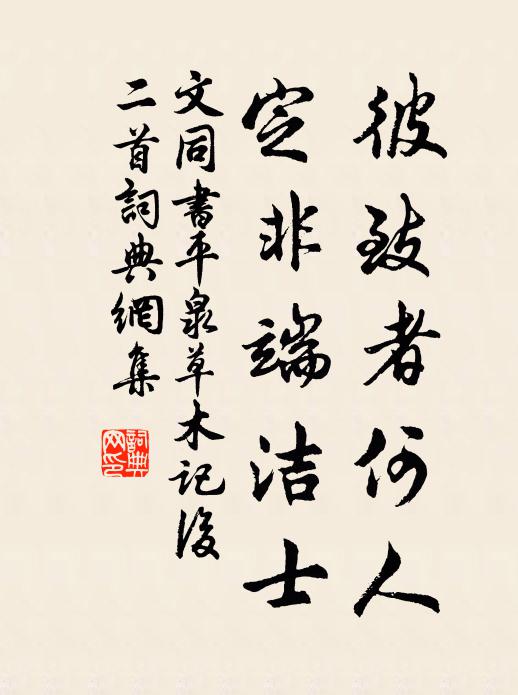 彼致者何人
定非端洁士
文同書平泉草木記後
二首詞典網集
詞典网印